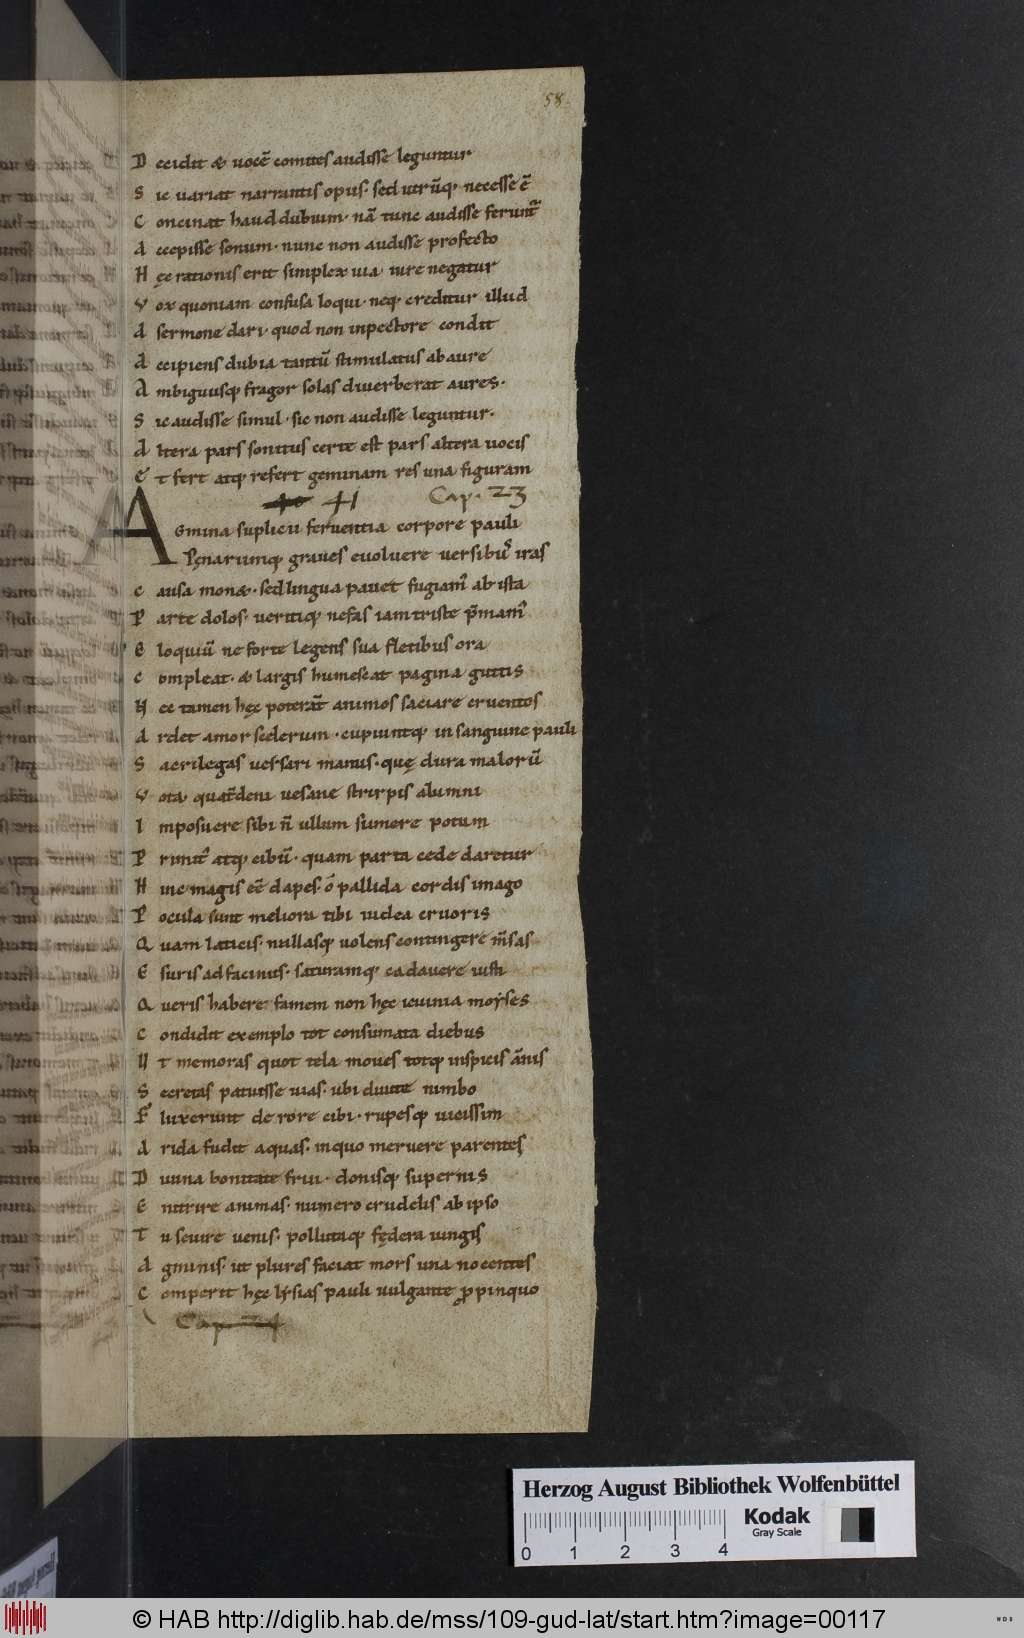 58
D ecidit & uocē comites audisse leguntur
S ic uariat narrantis opus· sed utrūq; necesse ē
C oncinat haud dubium· nā tunc audisse ferunt̄
A ccepisse sonum· nunc non audisse profecto
H ęc rationis erit simplex uia iure negatur
V ox quoniam confusa loqui· neq; creditur illud
A sermone dari· quod non inpectore condit
A ccipiens dubia tantū stimulatus ab aure
A mbiguusq; fragor solas diuerberat aures·
S ic audisse simul· sic non audisse leguntur·
A ltera pars sonitus certe est pars altera uocis
E t fert atq; refert geminam res una figuram
41 Cap. 23
A Gmina suplicii feruentia corpore pauli
Pęnarumq; graues euoluere uersibus iras
C ausa mon&· sed lingua pauet fugiam' ab ista
P arte dolos· ueritiq; nefas iam triste p̄mam'
E loquiū ne forte legens sua fletibus ora
C ompleat· & largis humescat pagina guttis
N ec tamen hęc poterat̄ animos saciare cruentos
A rdet amor scelerum· cupiuntq; in sanguine pauli
S acrilegas uersari manus· quę dura malorū
V ota quat̄deni uesane stirpis alumni
I mposuere sibi n̄ ullum sumere potum
P rimit' atq; cibū· quam parta cede daretur
H inc magis eē dapes· ó pallida cordis imago
P ocula sunt meliora tibi iudea cruoris
Q uam laticis· nullasq; uolens contingere m̄sas
E suris ad facinus· saturamq; cadauere iusti
Q ueris habere famem non hęc ieiunia moyses
C ondidit exemplo tot consumata diebus
U t memoras quot tela moues totq; inspicis ānis
S ecretas patuisse uias· ubi diuite nimbo
F luxerunt de rore cibi· rupesq; uicissim
A rida fudit aquas· inquo meruere parentes
D iuina bonitate frui· donisq; supernis
E nutrire animas· numero crudelis ab ipso
T u seuire uenis· pollutaq; fędera iungis
A gminis· ut plures faciat mors una nocentes
C omperit hęc lysias pauli uulgante propinquo
Cap 24
Herzog August Bibliothek Wolfenbüttel
Kodak
Gray Scale
0 1 2 3 4
© HAB http://diglib.hab.de/mss/109-gud-lat/start.htm?image=00117